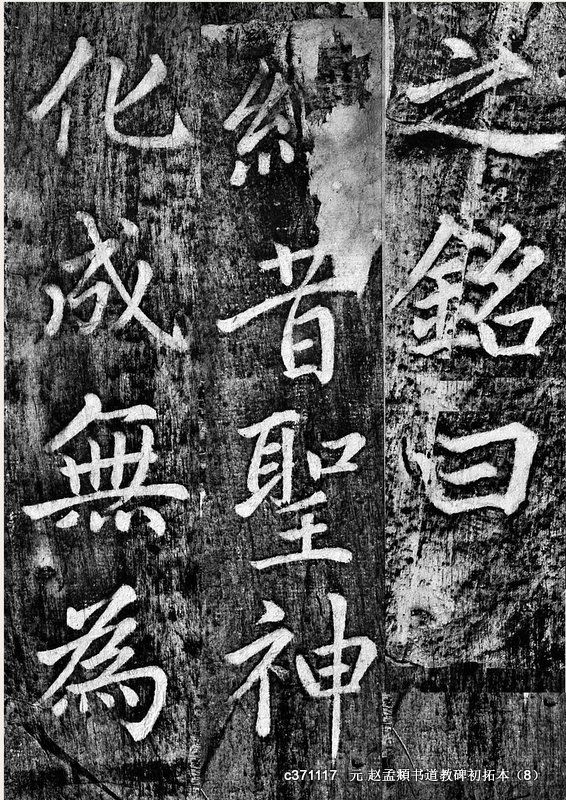 之銘曰
昔聖神
化成無為
c371117 元 赵孟頫书道教碑初拓本（8）